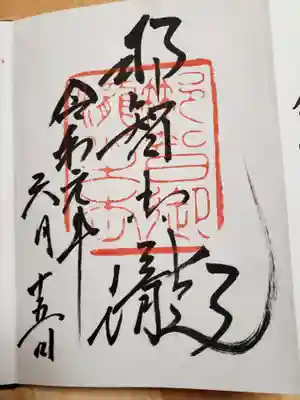 那智御瀧
令和元年
六月十五日